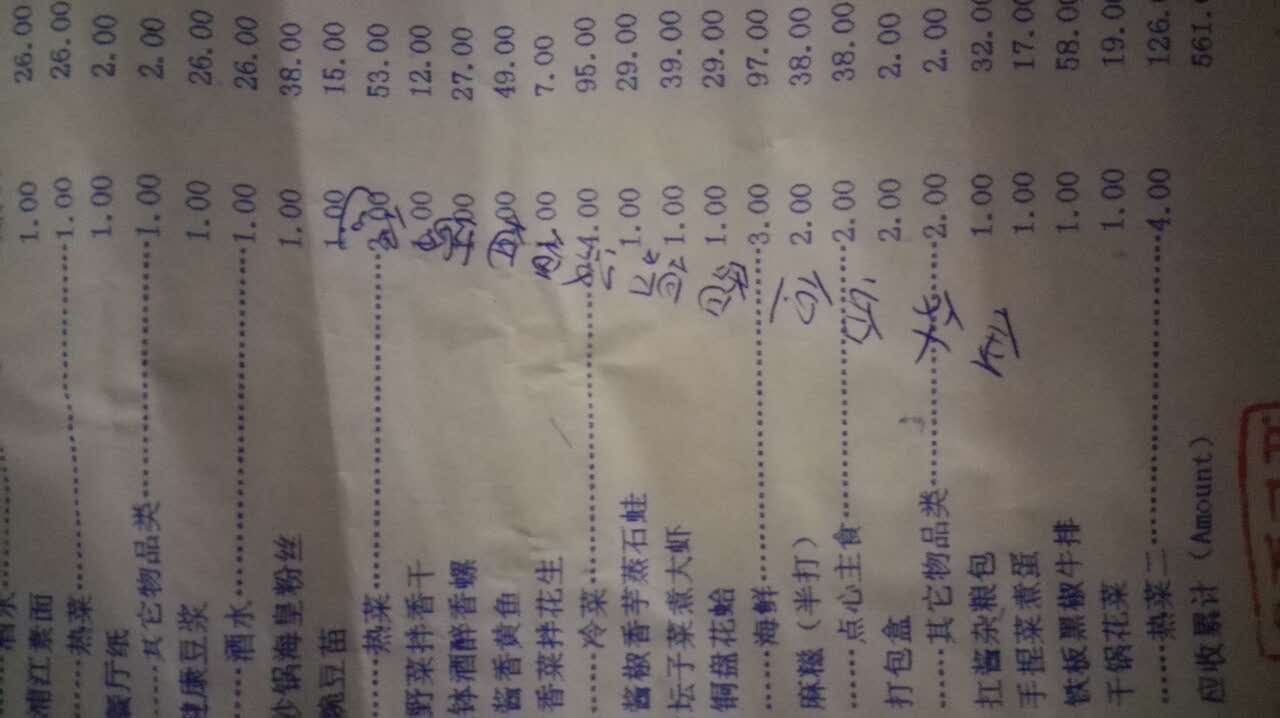 酒水
浦江菜面 1.00 26.00
......热菜......1.00 26.00
餐厅纸 1.00 2.00
......其它物品类......1.00 2.00
健康豆浆 1.00 26.00
......酒水......1.00 26.00
砂锅海皇粉丝 1.00 38.00
豌豆苗 1.00 15.00
......热菜......2.00 53.00
野菜拌香干 1.00 12.00
钵酒醉香螺 1.00 27.00
酱香黄鱼 1.00 49.00
香菜拌花生 1.00 7.00
......冷菜......4.00 95.00
酱椒香芋蒸石蛙 1.00 29.00
坛子菜煮大虾 1.00 39.00
铜盘花蛤 1.00 29.00
......海鲜......3.00 97.00
麻糍（半打） 2.00 38.00
......点心主食......2.00 38.00
打包盒 2.00 2.00
......其它物品类......2.00 2.00
扛酱杂粮包 1.00 32.00
手捏菜煮蛋 1.00 17.00
铁板黑椒牛排 1.00 58.00
干锅花菜 1.00 19.00
......热菜二......4.00 126.
应收累计（Amount） 561.